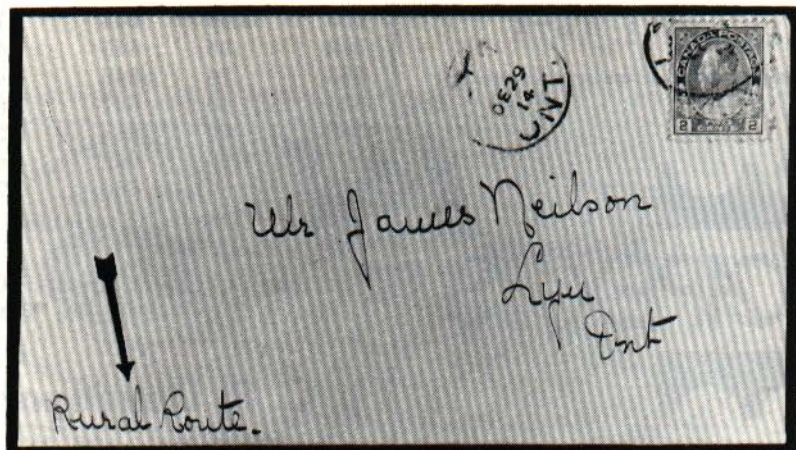 CANADA POSTAGE
2 CENTS 2
DE 29
14
ONT.
Mr James Neilson
Lyn
Ont
Rural Route.